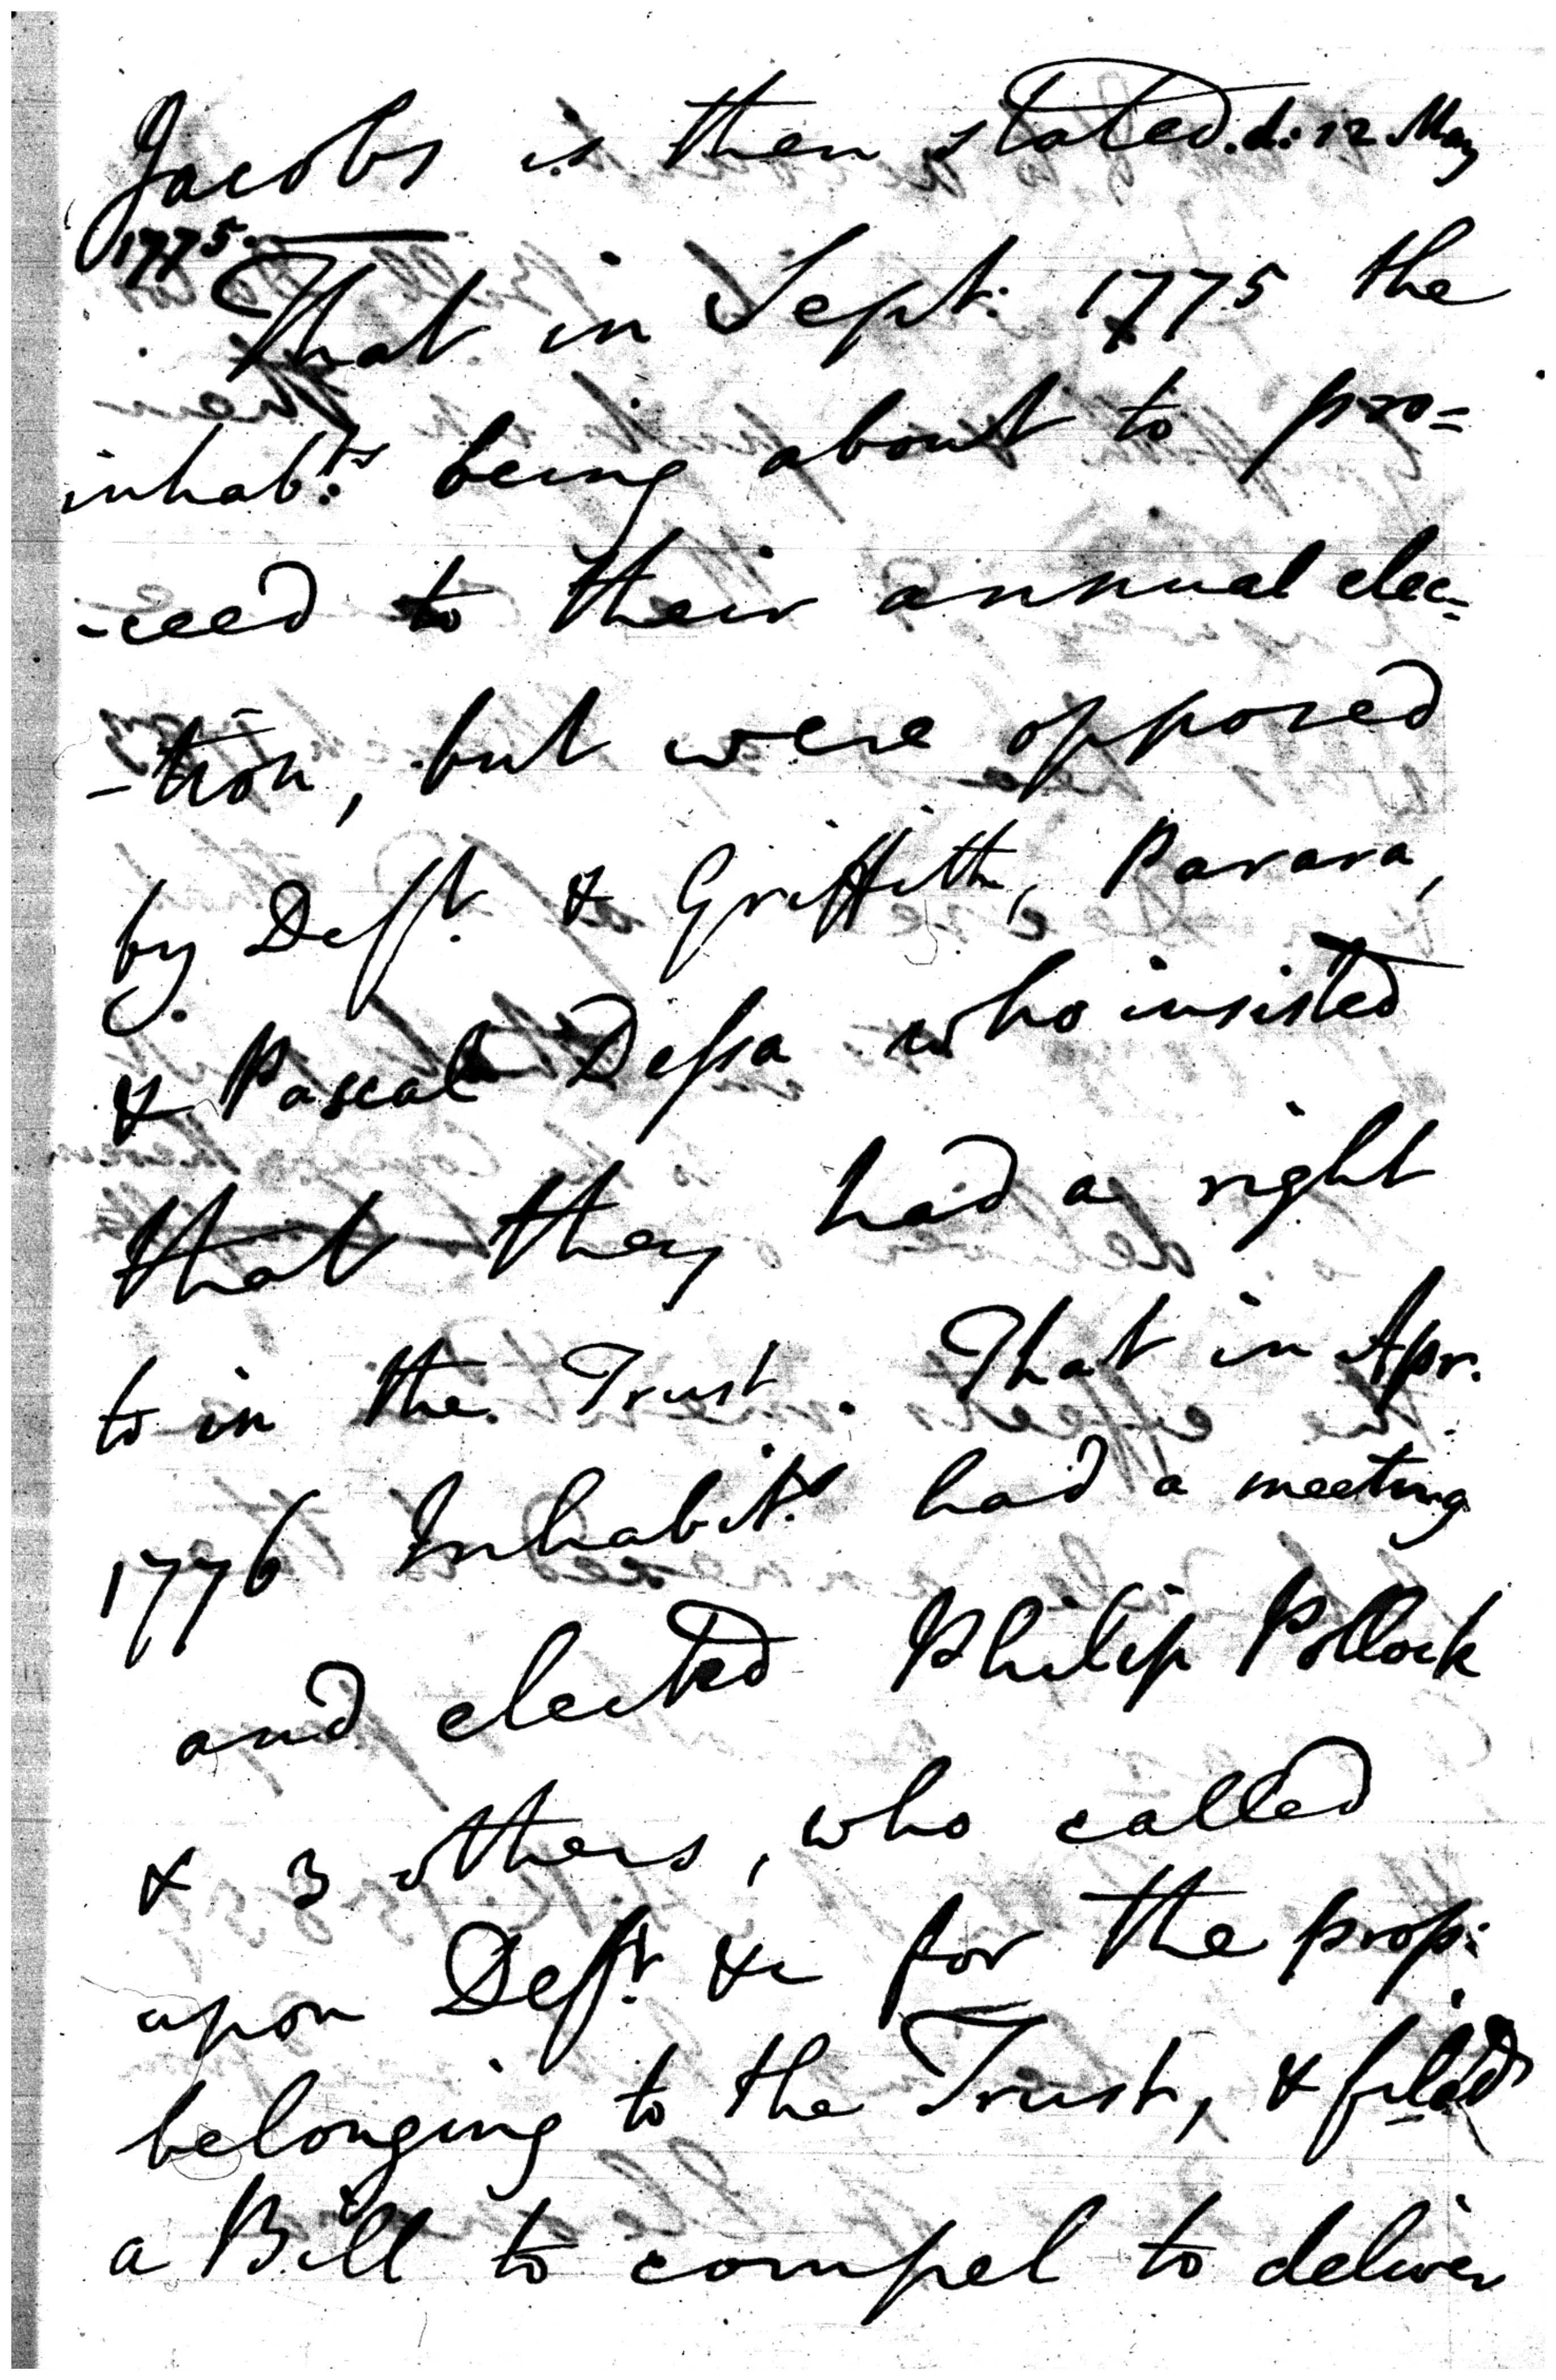 Jacobs is then stated. d: 12 May
1775. —
That in Sept: 1775 the
inhabts being about to pro=
-ceed to their annual elec=
-tion, but were opposed
by Deft. & Griffith, Parara,
& Pascal Dessa who insisted
that they had a right
to in the Trust. That in Apr.
1776 Inhabits had a meeting
and elected Philip Pollock
& 3 others, who called
upon Deft. &c for the prop:
belonging to the Trust, & filed
a Bill to compel to deliver